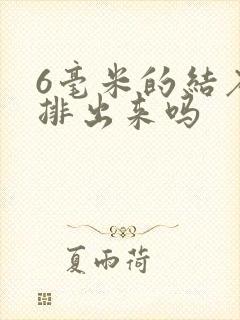 6毫米的结
排出来吗
夏雨荷